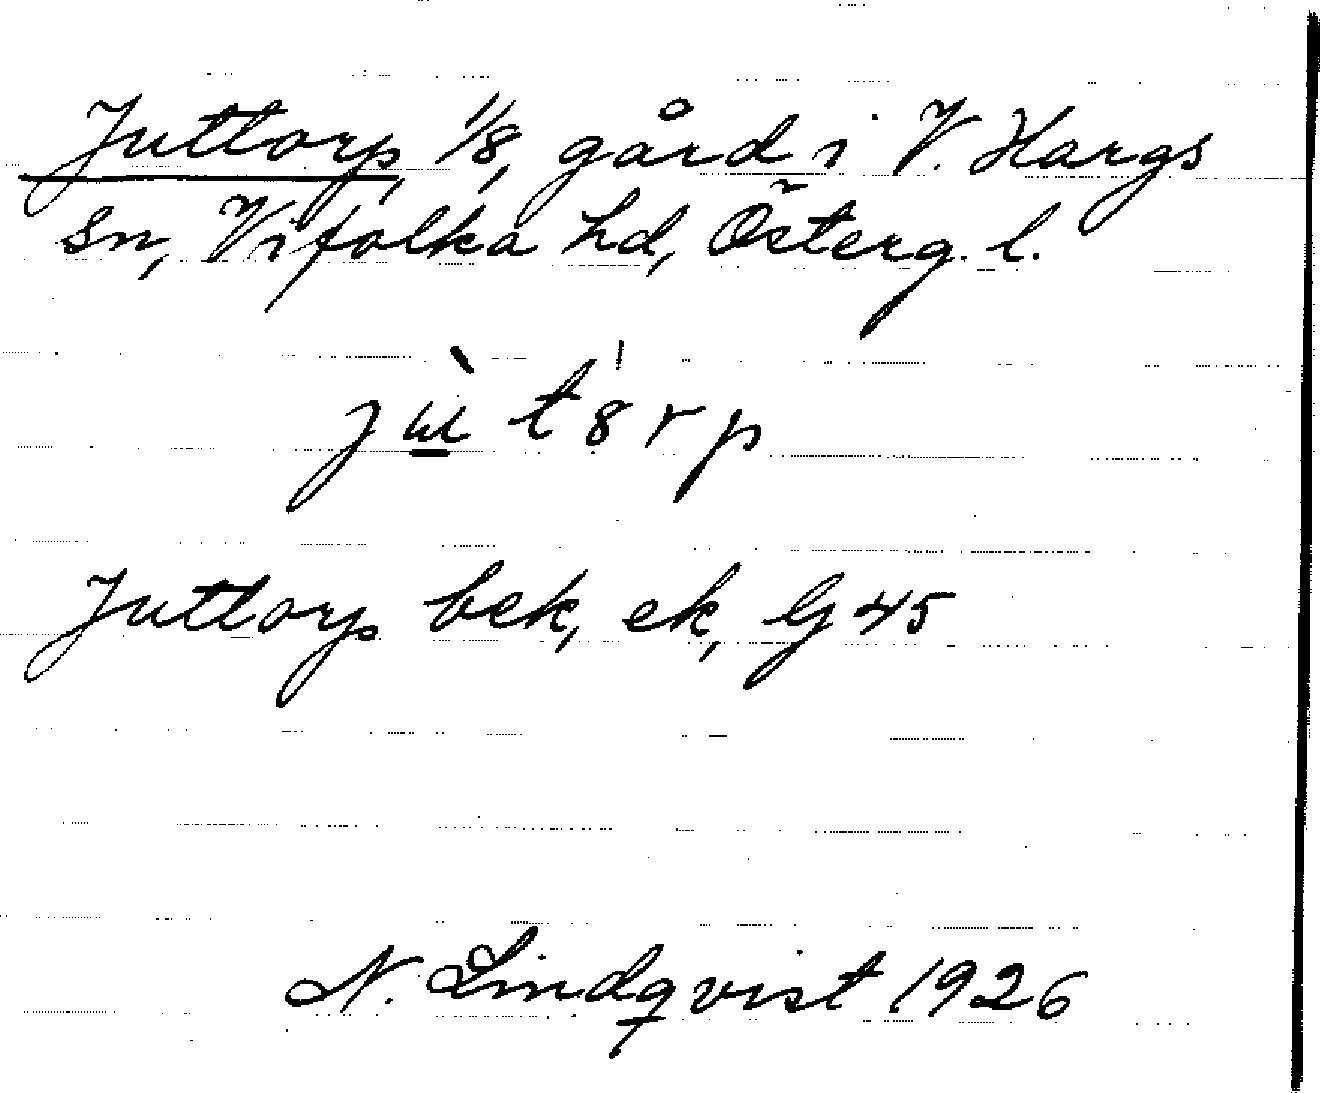 Juttorp, 1/8, gård i V. Hargs
sn, Vifolka hd, Österg. l.
jɯ̠̀ t 8 r p
Juttorp bek, ek, Gj 45
N. Lindqvist 1926